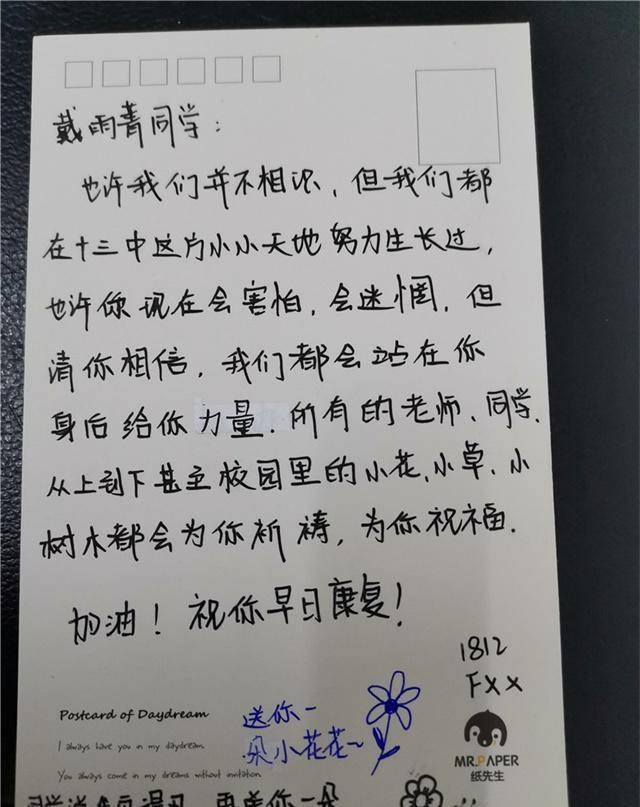 戴雨菁同学：
也许我们并不相识，但我们都
在十三中这片小小天地努力生长过，
也许你现在会害怕，会迷惘，但
请你相信，我们都会站在你
身后给你力量.所有的老师、同学.
从上到下甚至校园里的小花.小草.小
树木都会为你祈祷，为你祝福.
加油！祝你早日康复！
1812
FXX
送你一
朵小花花~
Postcard of Daydream
I always have you in my daydream.
You always come in my dreams without invitation.
MR.PAPER
纸先生
再送你一朵